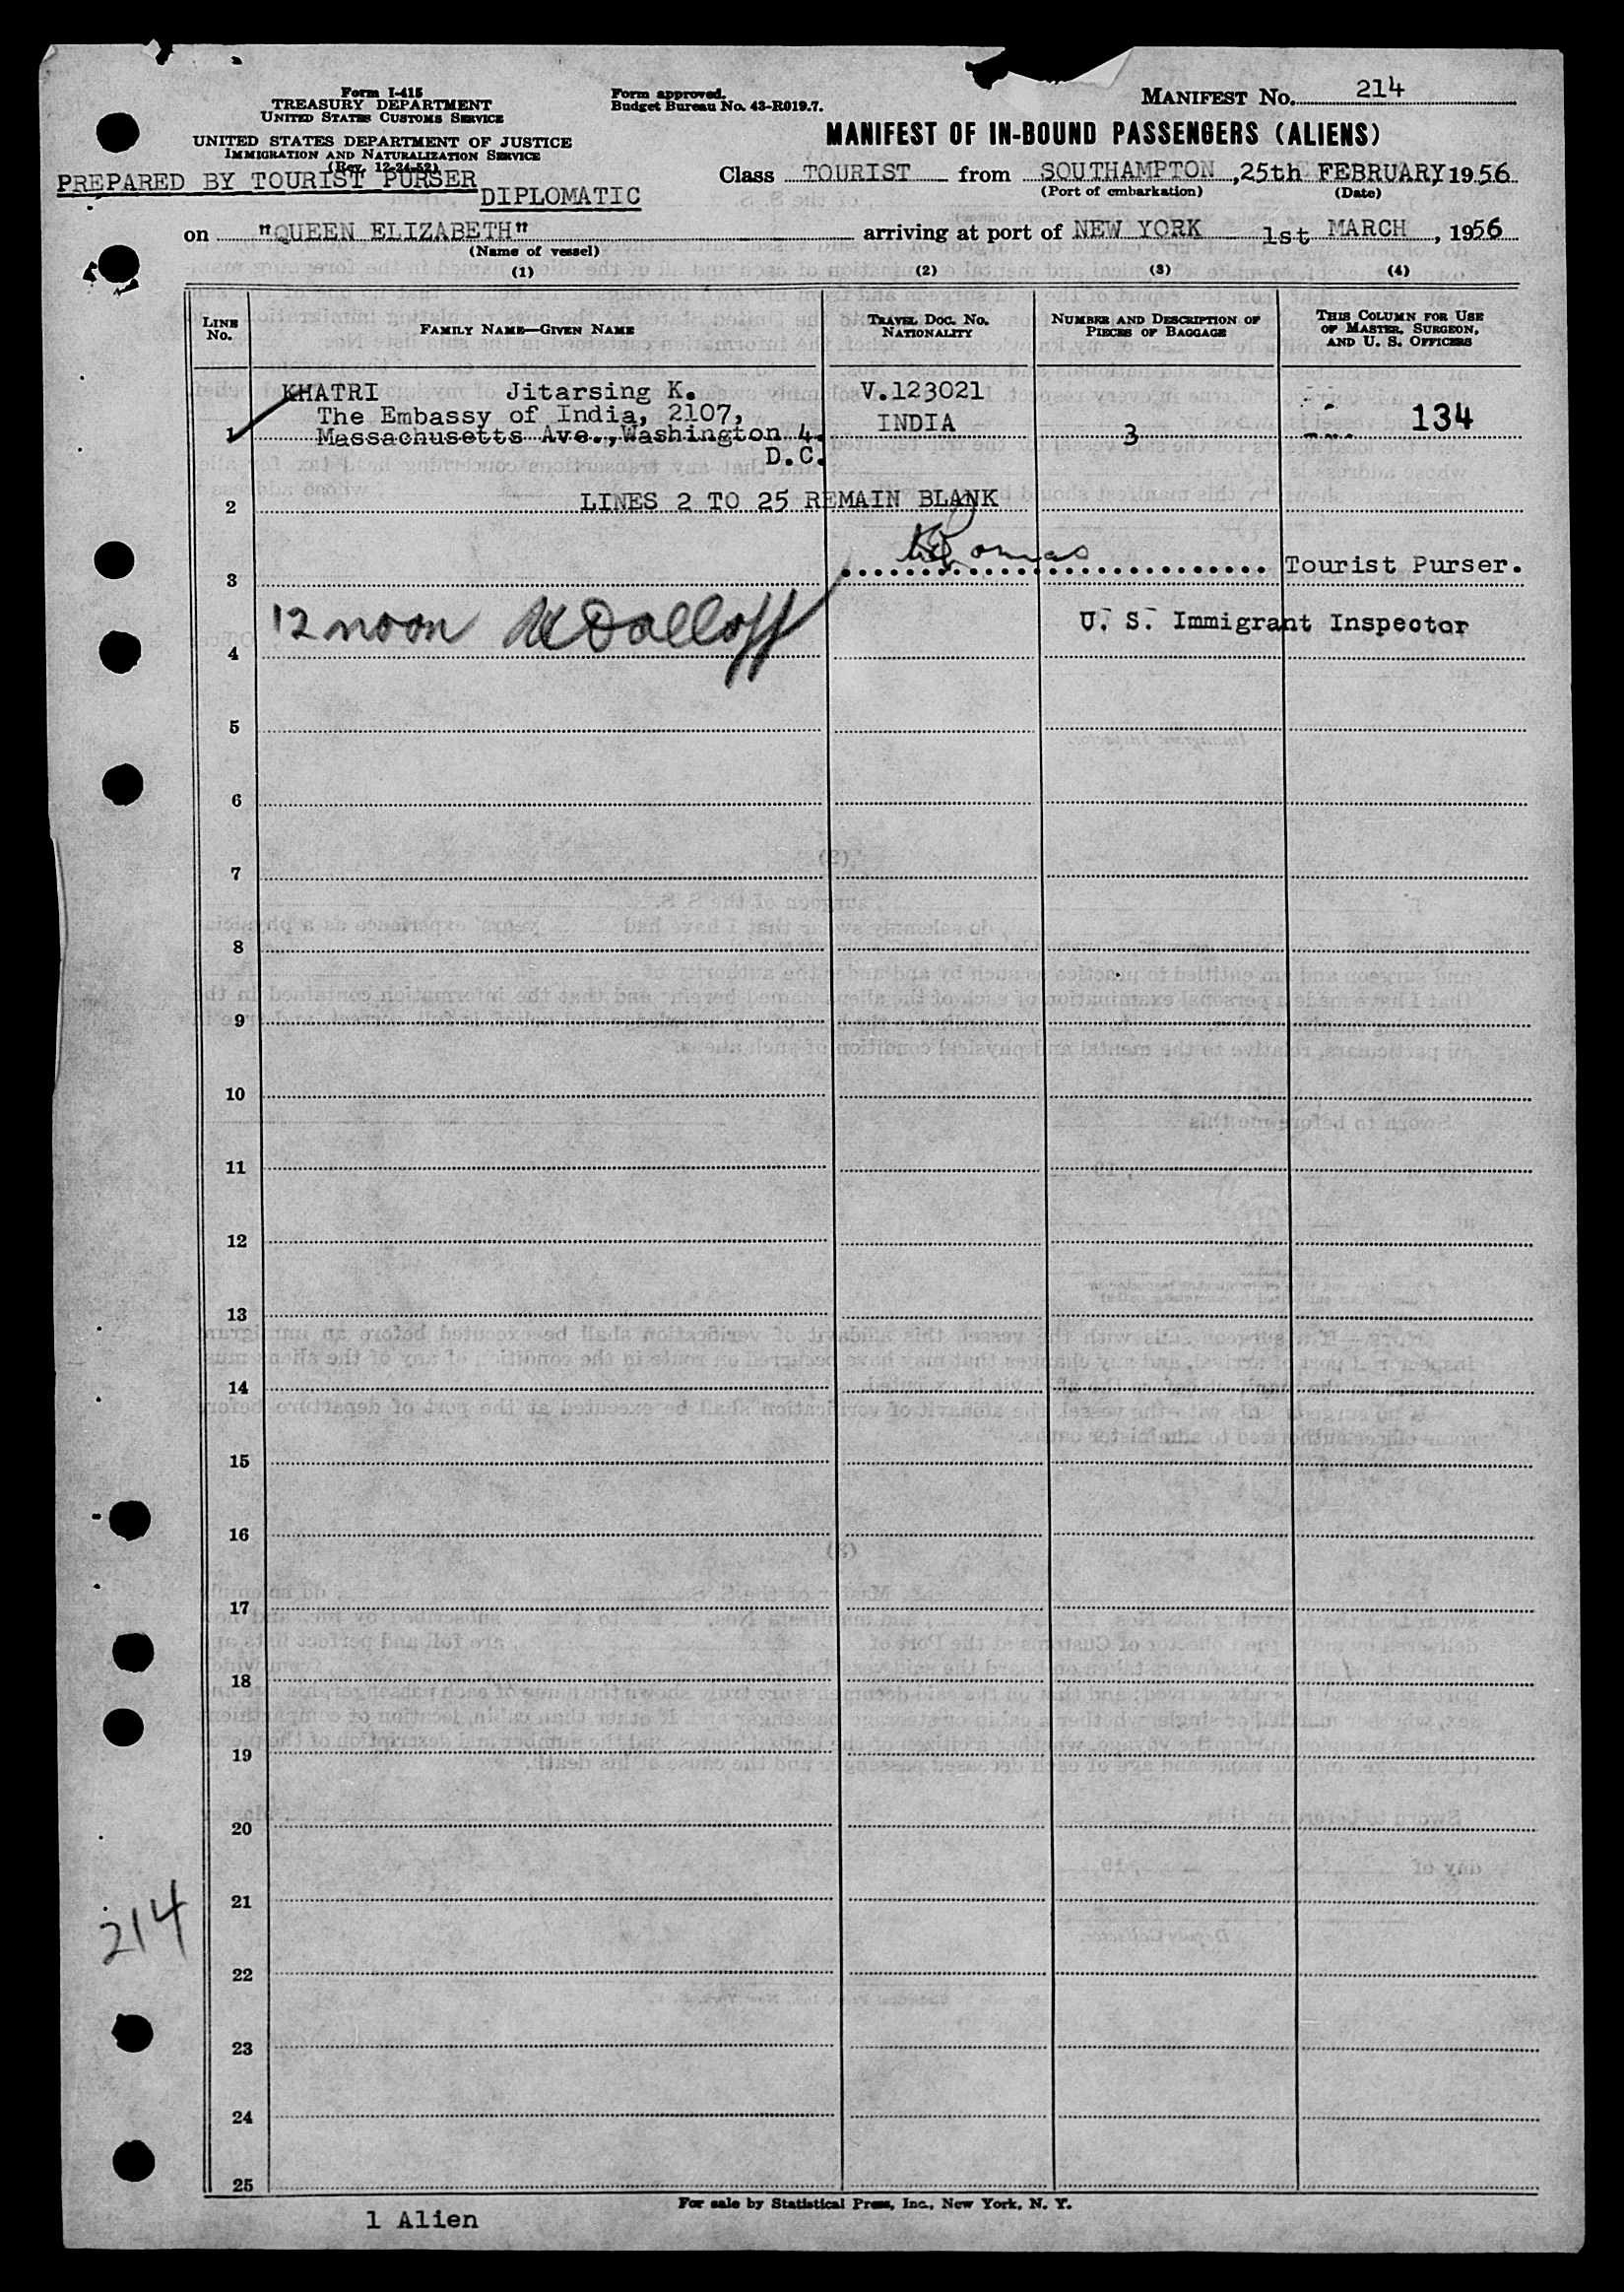 Form I-415
TREASURY DEPARTMENT
UNITED STATES CUSTOMS SERVICE
UNITED STATES DEPARTMENT OF JUSTICE
IMMIGRATION AND NATURALIZATION SERVICE
(Rev. 12-24-52)
PREPARED BY TOURIST PURSER
DIPLOMATIC
Form approved.
Budget Bureau No. 43-R019.7.
MANIFEST NO. 214
MANIFEST OF IN-BOUND PASSENGERS (ALIENS)
Class TOURIST from SOUTHAMPTON, 25th FEBRUARY, 1956
(Port of embarkation) (Date)
on "QUEEN ELIZABETH" arriving at port of NEW YORK 1st MARCH, 1956
(Name of vessel)
(1) (2) (3) (4)
LINE NO. FAMILY NAME—GIVEN NAME TRAVEL DOC. NO. NATIONALITY NUMBER AND DESCRIPTION OF PIECES OF BAGGAGE THIS COLUMN FOR USE OF MASTER, SURGEON, AND U. S. OFFICERS
KHATRI Jitarsing K. V.123021
The Embassy of India, 2107, INDIA 134
1 Massachusetts Ave.,Washington 4. 3
D.C.
2 LINES 2 TO 25 REMAIN BLANK
3 Tourist Purser.
12 noon U. S. Immigrant Inspector
4
5
6
7
8
9
10
11
12
13
14
15
16
17
18
19
20
21
214
22
23
24
25
For sale by Statistical Press, Inc., New York, N. Y.
1 Alien